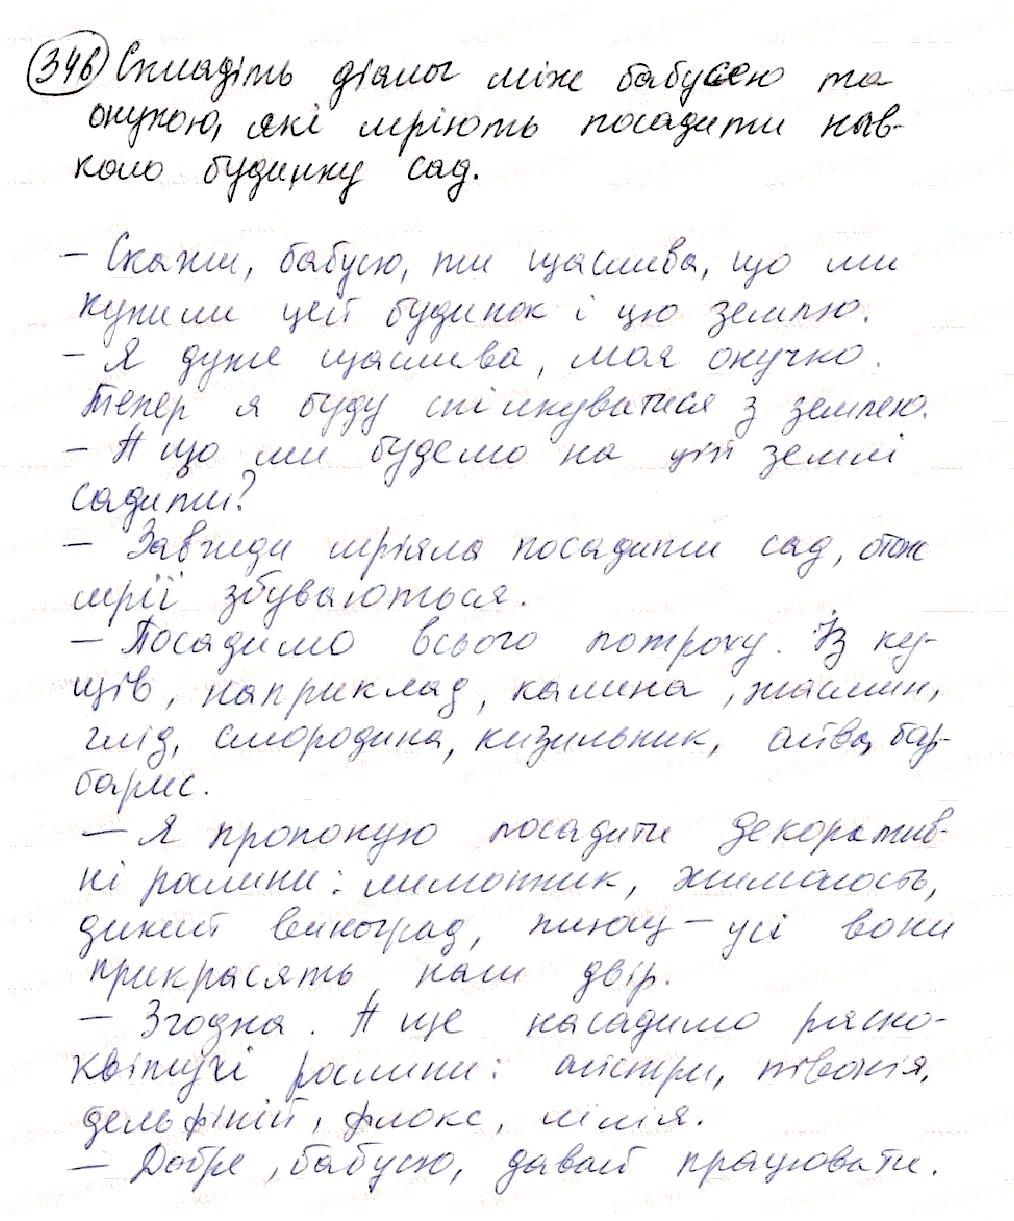 346 Складіть діалог між бабусею та
онукою, які мріють посадити нав-
коло будинку сад.
– Скажи, бабусю, ти щаслива, що ми
купили цей будинок і цю землю.
– Я дуже щаслива, моя онучко.
Тепер я буду спілкуватися з землею.
– А що ми будемо на цій землі
садити?
– Завжди мріяла посадити сад, отож
мрії збуваються.
– Посадимо всього потроху. Із ку-
щів, наприклад, калина, жасмин,
глід, смородина, кизильник, айва, бар-
барис.
– Я пропоную посадити декоратив-
ні рослини: лимонник, жимолость,
дикий виноград, плющ – усі вони
прикрасять наш двір.
– Згодна. А ще насадимо рясно-
квітучі рослини: айстри, півонія,
дельфіній, флокс, лілія.
– Добре, бабусю, давай працювати.